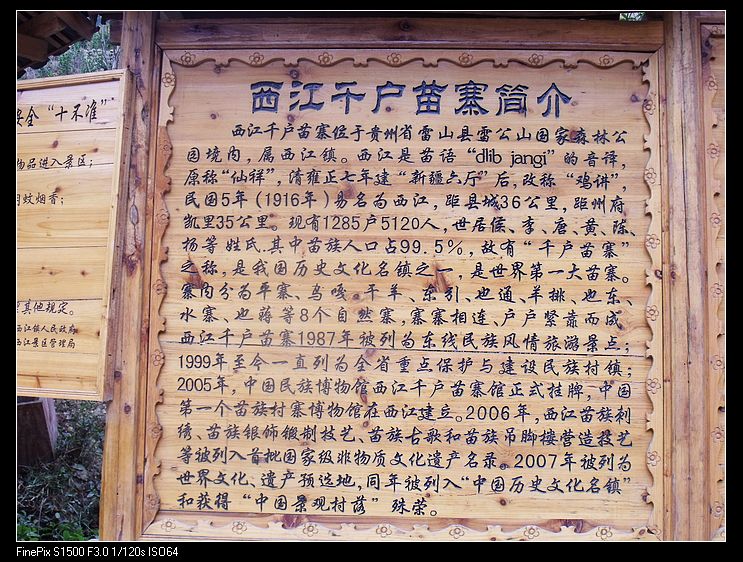 全 "十不准"
物品进入景区；
用蚊烟香；
其他规定。
西江镇人民政府
西江景区管理局
西江千户苗寨简介
西江千户苗寨位于贵州省雷山县雷公山国家森林公
园境内，属西江镇。西江是苗语"dlib jangi"的音译，
原称"仙祥"，清雍正七年建"新疆六厅"后，改称"鸡讲"，
民国5年（1916年）易名为西江，距县城36公里，距州府
凯里35公里。现有1285户5120人，世居侯、李、唐、黄、陈、
杨等姓氏.其中苗族人口占99.5%，故有"千户苗寨"
之称，是我国历史文化名镇之一，是世界第一大苗寨。
寨内分为平寨、乌嘎。干羊、东引、也通、羊排、也东、
水寨、也蒋等8个自然寨，寨寨相连、户户紧靠而成
西江千户苗寨1987年被列为东线民族风情旅游景点；
1999年至今一直列为全省重点保护与建设民族村镇；
2005年，中国民族博物馆西江千户苗寨馆正式挂牌，中国
第一个苗族村寨博物馆在西江建立。2006年，西江苗族刺
绣、苗族银饰锻制技艺、苗族古歌和苗族吊脚楼营造技艺
等被列入首批国家级非物质文化遗产名录。2007年被列为
世界文化、遗产预选地，同年被列入"中国历史文化名镇"
和获得"中国景观村落"殊荣。
FinePix S1500 F3.0 1/120s ISO64